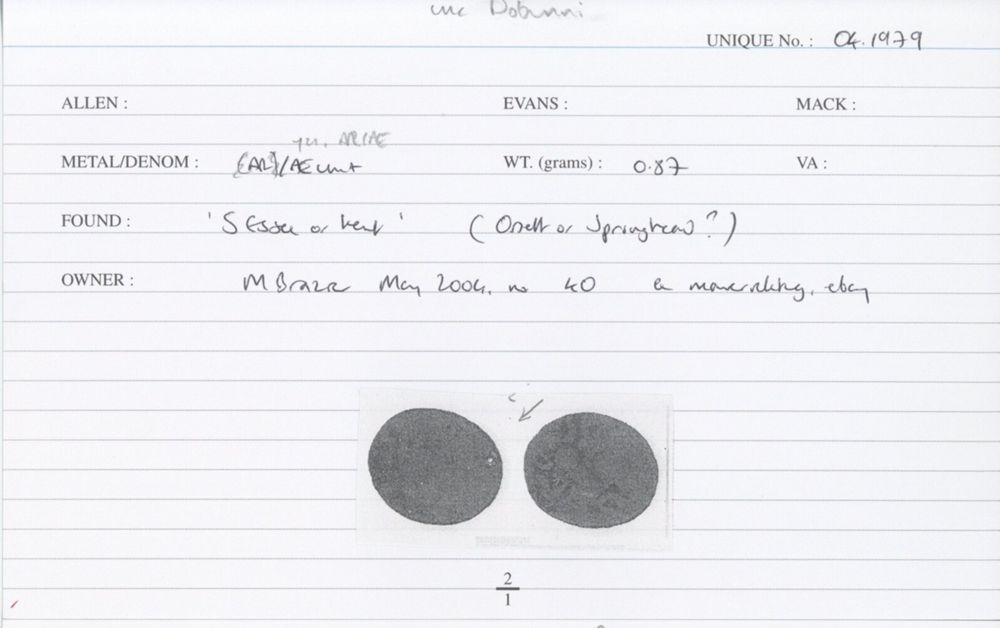 unc Dobunni
UNIQUE No. : 04.1979
ALLEN : EVANS : MACK :
yes, AR/AE
METAL/DENOM : [AR]/AE unit WT. (grams) : 0.87 VA :
FOUND : 'S Essex or Kent' ( or Springhead?)
OWNER : M May 2004, no 40 , ebay
2
1